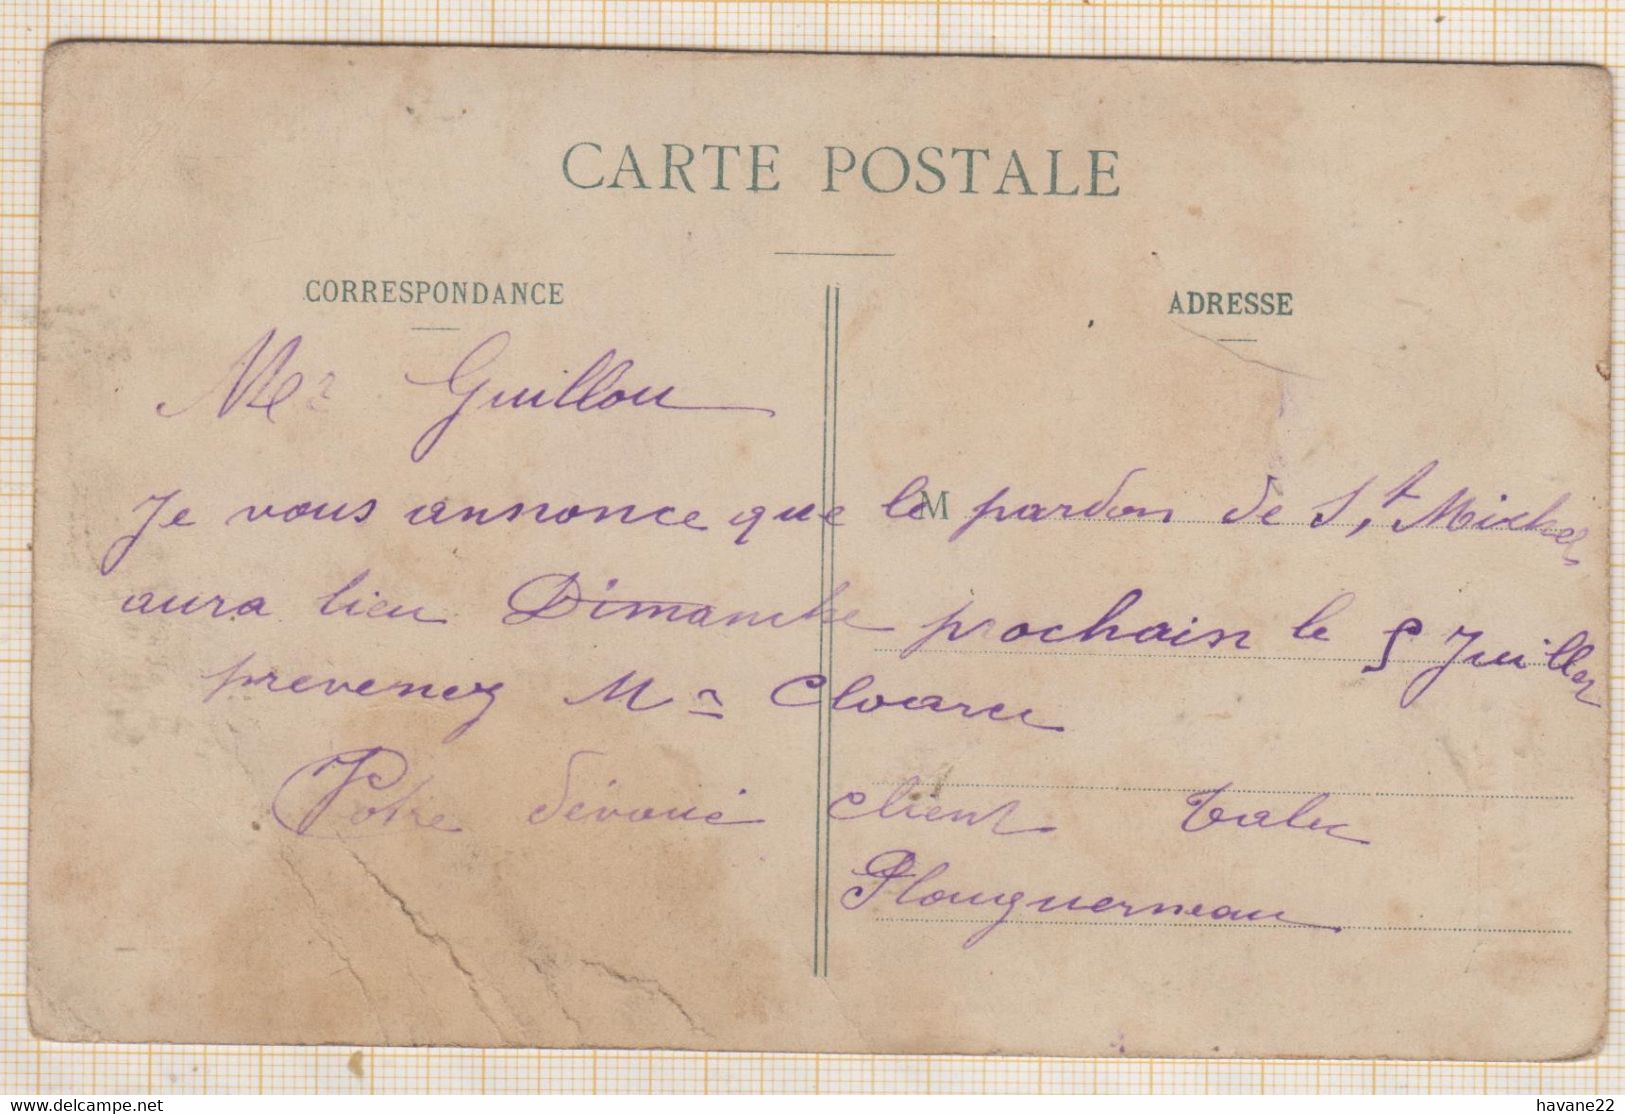 CARTE POSTALE
CORRESPONDANCE
ADRESSE
Mr Guillou
M
Je vous annonce que le pardon de St Michel
aura lieu Dimanche prochain le 5 Juillet
prevenez Mr Cloarec
Votre dévoué client
Plouguerneau
www.delcampe.net
havane22